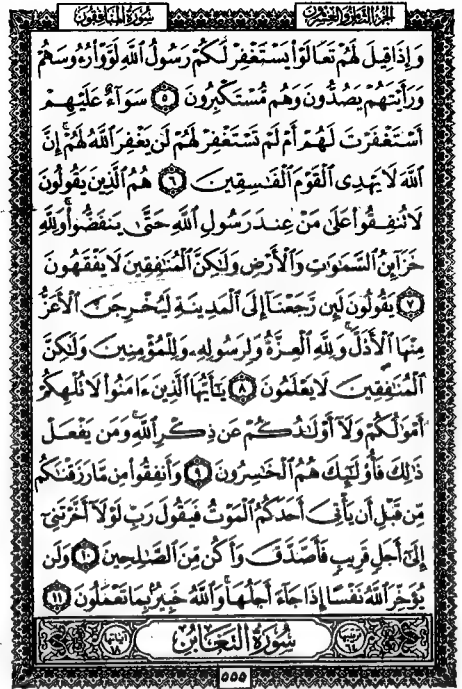 سُورَةُ المُنَافِقُونَ
الجُزْءُ الثَّامِنُ وَالعِشْرُونَ
وَإِذَا قِيلَ لَهُمْ تَعَالَوْا۟ يَسْتَغْفِرْ لَكُمْ رَسُولُ ٱللَّهِ لَوَّوْا۟ رُءُوسَهُمْ
وَرَأَيْتَهُمْ يَصُدُّونَ وَهُم مُّسْتَكْبِرُونَ ٥ سَوَآءٌ عَلَيْهِمْ
أَسْتَغْفَرْتَ لَهُمْ أَمْ لَمْ تَسْتَغْفِرْ لَهُمْ لَن يَغْفِرَ ٱللَّهُ لَهُمْ ۚ إِنَّ
ٱللَّهَ لَا يَهْدِى ٱلْقَوْمَ ٱلْفَٰسِقِينَ ٦ هُمُ ٱلَّذِينَ يَقُولُونَ
لَا تُنفِقُوا۟ عَلَىٰ مَنْ عِندَ رَسُولِ ٱللَّهِ حَتَّىٰ يَنفَضُّوا۟ ۗ وَلِلَّهِ
خَزَآئِنُ ٱلسَّمَٰوَٰتِ وَٱلْأَرْضِ وَلَٰكِنَّ ٱلْمُنَٰفِقِينَ لَا يَفْقَهُونَ
٧ يَقُولُونَ لَئِن رَّجَعْنَآ إِلَى ٱلْمَدِينَةِ لَيُخْرِجَنَّ ٱلْأَعَزُّ
مِنْهَا ٱلْأَذَلَّ ۚ وَلِلَّهِ ٱلْعِزَّةُ وَلِرَسُولِهِۦ وَلِلْمُؤْمِنِينَ وَلَٰكِنَّ
ٱلْمُنَٰفِقِينَ لَا يَعْلَمُونَ ٨ يَٰٓأَيُّهَا ٱلَّذِينَ ءَامَنُوا۟ لَا تُلْهِكُمْ
أَمْوَٰلُكُمْ وَلَآ أَوْلَٰدُكُمْ عَن ذِكْرِ ٱللَّهِ ۚ وَمَن يَفْعَلْ
ذَٰلِكَ فَأُو۟لَٰٓئِكَ هُمُ ٱلْخَٰسِرُونَ ٩ وَأَنفِقُوا۟ مِن مَّا رَزَقْنَٰكُم
مِّن قَبْلِ أَن يَأْتِىَ أَحَدَكُمُ ٱلْمَوْتُ فَيَقُولَ رَبِّ لَوْلَآ أَخَّرْتَنِىٓ
إِلَىٰٓ أَجَلٍ قَرِيبٍ فَأَصَّدَّقَ وَأَكُن مِّنَ ٱلصَّٰلِحِينَ ١٠ وَلَن
يُؤَخِّرَ ٱللَّهُ نَفْسًا إِذَا جَآءَ أَجَلُهَا ۚ وَٱللَّهُ خَبِيرٌۢ بِمَا تَعْمَلُونَ ١١
ترتيبها ٦٤ سُورَةُ التَّغَابُنِ آياتها ١٨
٥٥٥